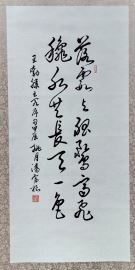 落霞与孤鹜齐飞
秋水共长天一色
王勃滕王阁序句